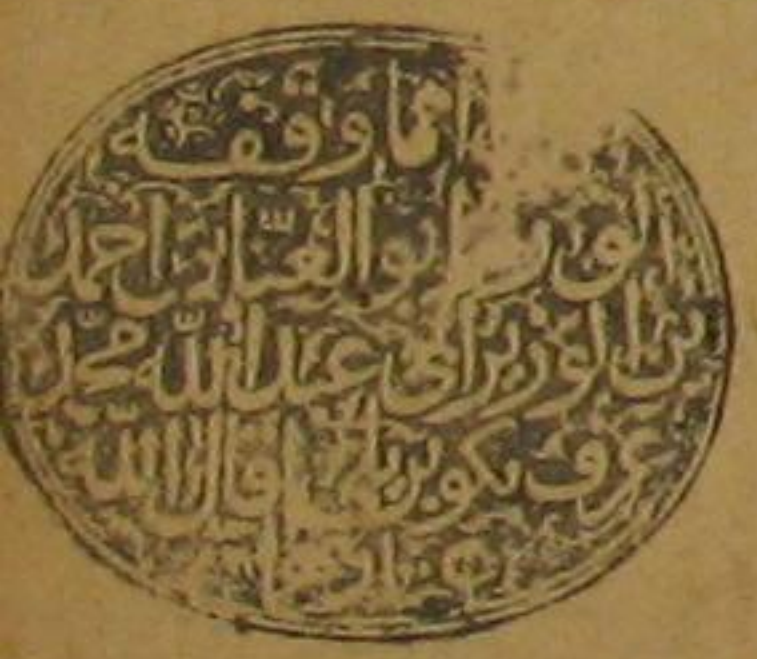 مما وقفه
الوزير ابو العباس احمد
بن الوزير ابى عبد الله محمد
عرف بكوبريلى اقال الله